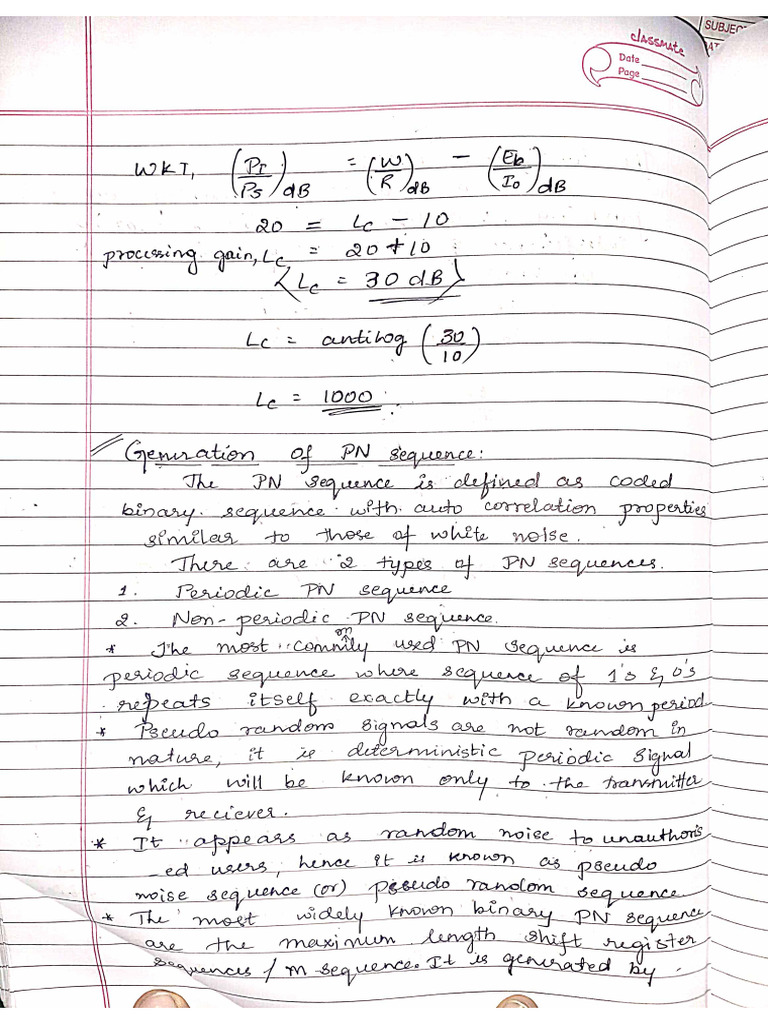 SUBJEC
classmate
Date
Page
WKT, (PI/PS)dB = (W/R)dB - (Eb/I0)dB
20 = Lc - 10
processing gain, Lc = 20+10
Lc = 30 dB
Lc = antilog (30/10)
Lc = 1000
Generation of PN sequence:
The PN sequence is defined as coded
binary sequence with auto correlation properties
similar to those of white noise.
There are 2 types of PN sequences.
1. Periodic PN sequence
2. Non-periodic PN sequence.
* The most commonly used PN sequence is
periodic sequence where sequence of 1's & 0's
repeats itself exactly with a known period
* Pseudo random signals are not random in
nature, it is deterministic periodic signal
which will be known only to the transmitter
& reciever.
* It appears as random noise to unauthoris
-ed users, hence it is known as pseudo
noise sequence (or) pseudo random sequence
* The most widely known binary PN sequence
are the maximum length shift register
sequences / m sequence. It is generated by